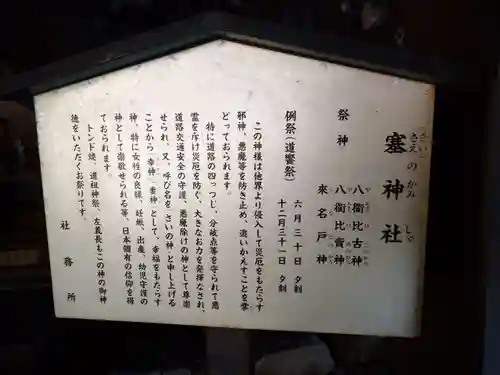 塞神社
さい
さえのかみしゃ
祭神
八衢比古神
八衢比賣神
來名戸神
例祭(道饗祭)
六月三十日 夕刻
十二月三十一日 夕刻
この神様は他界より侵入して災厄をもたらす
邪神、悪魔等を防ぎ止め、追いかえすことを掌
どっておられます。
特に道路の四つつじ、分岐点等を守られて悪
霊を斥け災厄を防ぐ、大きなお力を発揮なされ、
道路交通安全の守護、悪魔除けの神として尊崇
せられ、又、呼び名を「さいの神」と申し上げる
ことから「幸神、妻神」として、幸福をもたらす
神、特に女性の良縁、妊娠、出産、幼児守護の
神として崇敬せられる等、日本個有の信仰を得
ておられます。
トンド焼、道祖神祭、左義長もこの神の御神
徳をいただくお祭りです。
社務所